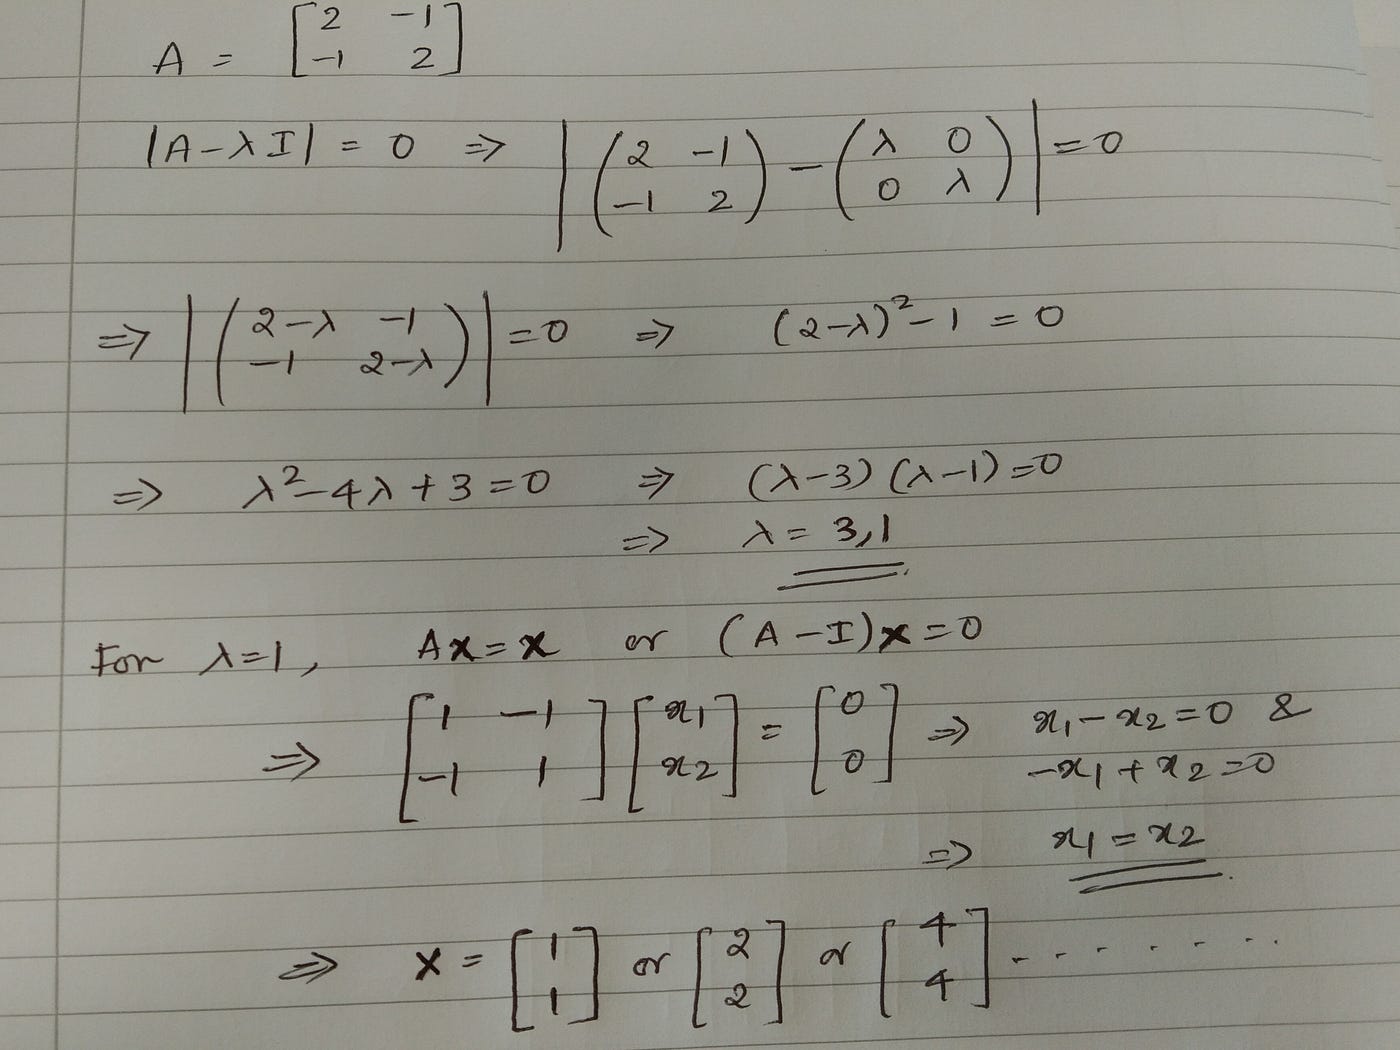 A = [2 -1
-1 2]
|A-λI| = 0 ⇒ |(2 -1
-1 2) - (λ 0
0 λ)| = 0
⇒ |(2-λ -1
-1 2-λ)| = 0 ⇒ (2-λ)² - 1 = 0
⇒ λ² - 4λ + 3 = 0 ⇒ (λ-3)(λ-1) = 0
⇒ λ = 3,1
For λ=1, Ax = x or (A - I)x = 0
⇒ [1 -1
-1 1] [x₁
x₂] = [0
0] ⇒ x₁ - x₂ = 0 &
-x₁ + x₂ = 0
⇒ x₁ = x₂
⇒ x = [1
1] or [2
2] or [4
4] - - - - - - - -